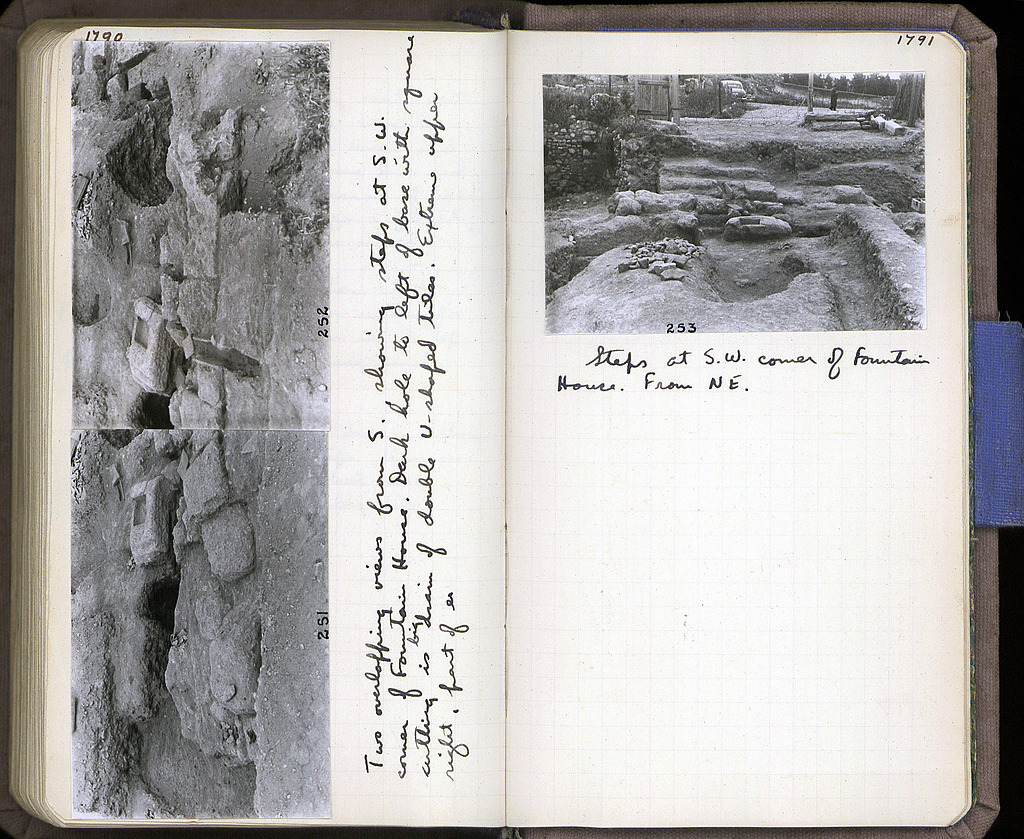 1790
252
251
Two overlapping views from S. showing steps at S.W.
corner of Fountain House. Dark hole to left of base with square
cutting is big drain of double U-shaped tiles. Extreme upper
right, part of
1791
253
Steps at S.W. corner of Fountain
House. From NE.